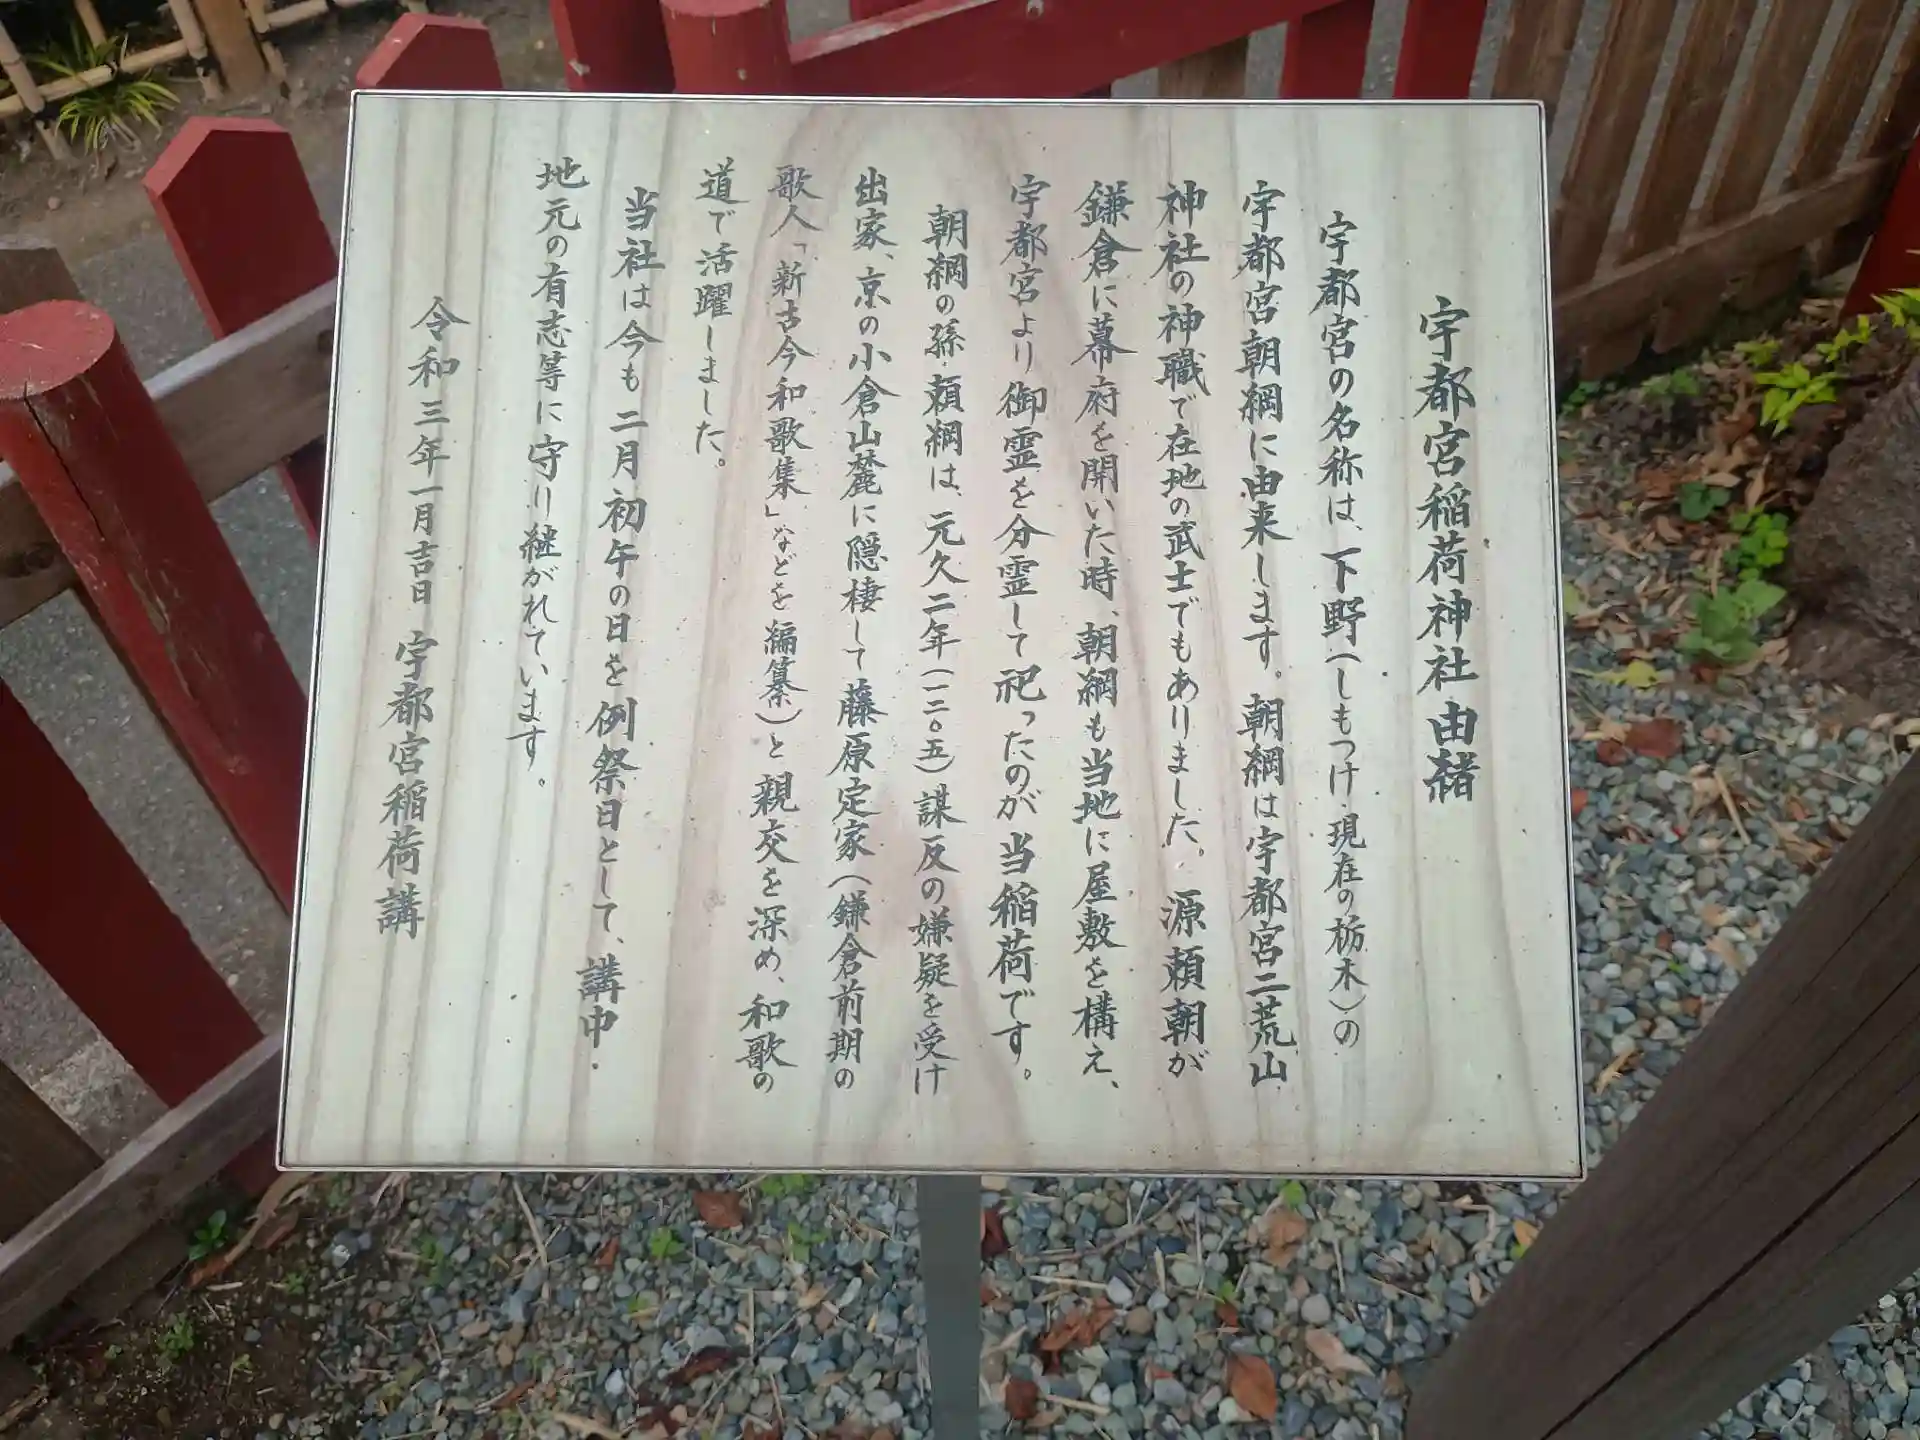 宇都宮稲荷神社由緒
宇都宮の名称は、下野(しもつけ・現在の栃木)の
宇都宮朝綱に由来します。朝綱は宇都宮二荒山
神社の神職で在地の武士でもありました。源頼朝が
鎌倉に幕府を開いた時、朝綱も当地に屋敷を構え、
宇都宮より御霊を分霊して祀ったのが当稲荷です。
朝綱の孫・頼綱は、元久二年(一二〇五)謀反の嫌疑を受け
出家、京の小倉山麓に隠棲して藤原定家(鎌倉前期の
歌人「新古今和歌集」などを編纂)と親交を深め、和歌の
道で活躍しました。
当社は今も二月初午の日を例祭日として、講中・
地元の有志等に守り継がれています。
令和三年一月吉日 宇都宮稲荷講